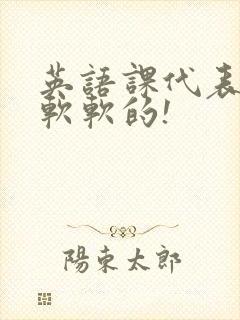 英語課代表
軟軟的!
陽東太郎